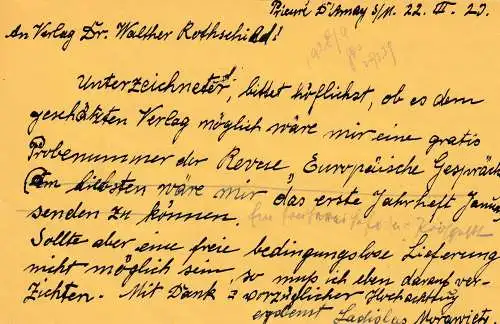 Prieuré D'Arnay s/M. 22. III. 29.
An Verlag Dr. Walther Rothschild!
Unterzeichneter, bittet höflichst, ob es dem
geschätzten Verlag möglich wäre mir eine gratis
Probenummer der Revue „Europäische Gespräch
Am liebsten wäre mir das erste Jahrheft Janu
senden zu können.
Sollte aber eine freie bedingungslose Lieferung
nicht möglich sein, so muß ich eben darauf ver-
zichten. Mit Dank & vorzüglicher Hochachtug
ergebenst Ladislas Morawietz